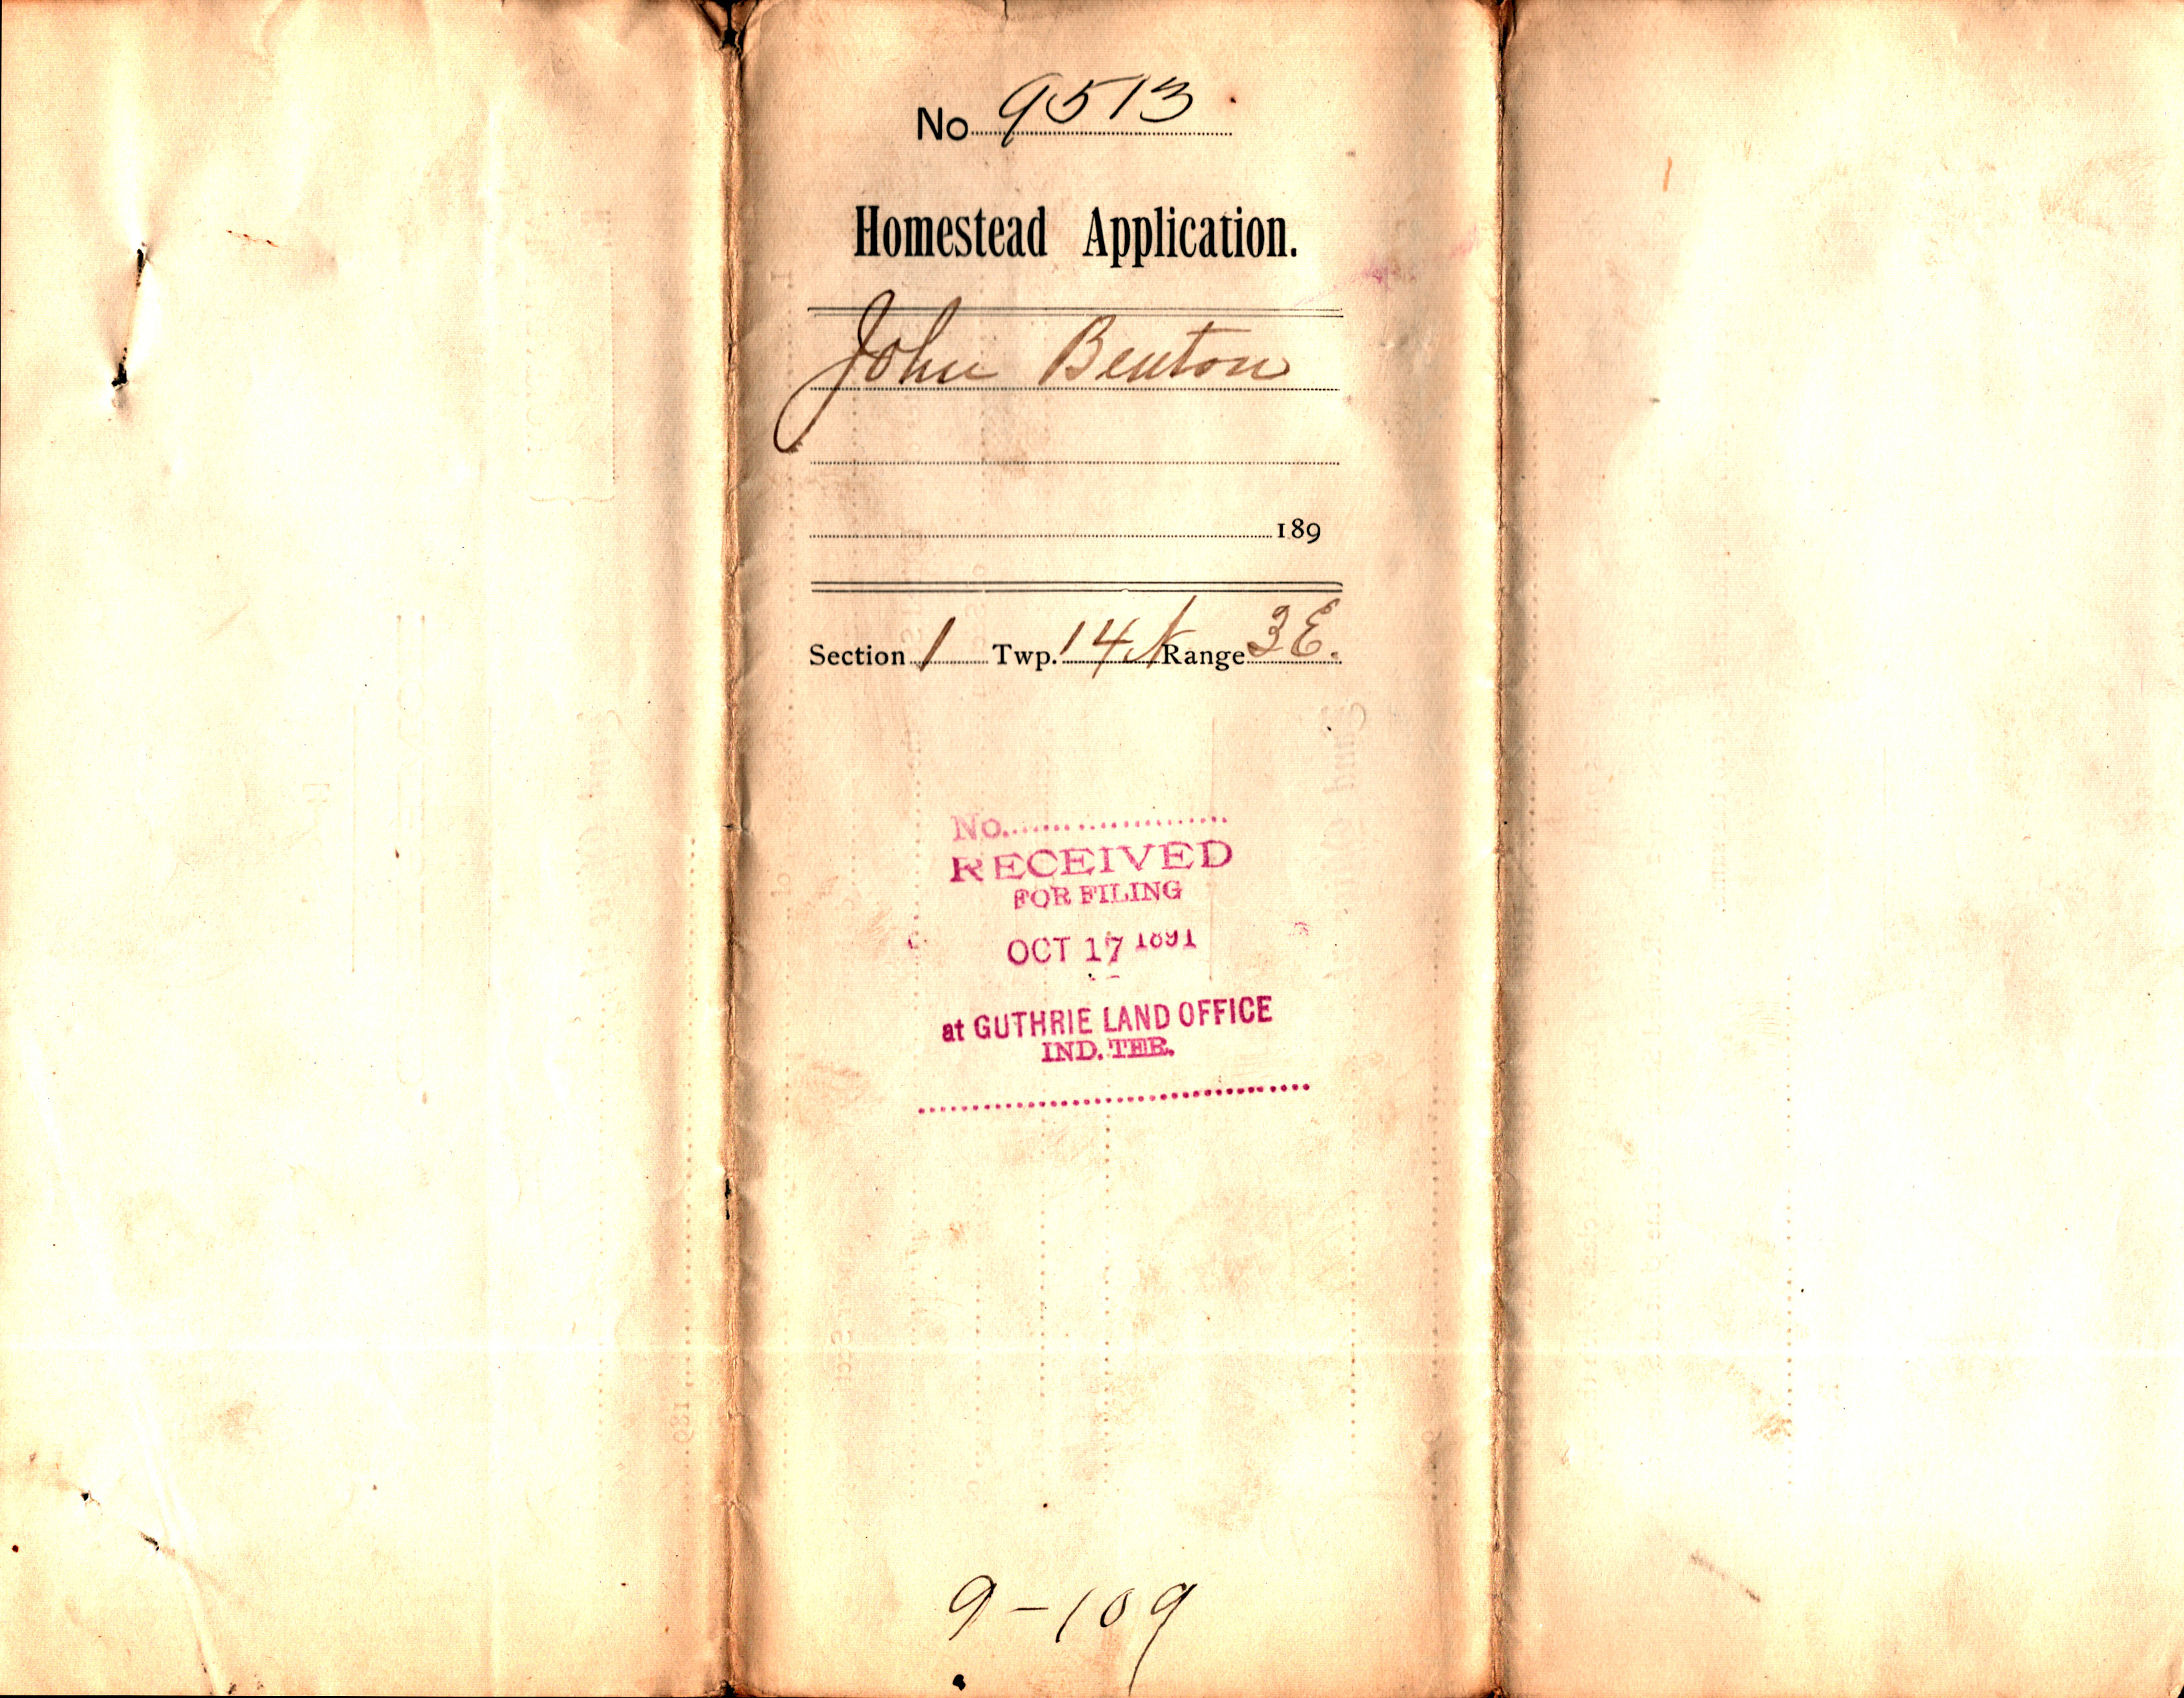 No 9513
Homestead Application.
John Benton
189
Section 1 Twp. 14 N Range 3 E.
No.
RECEIVED
FOR FILING
OCT 17 1891
at GUTHRIE LAND OFFICE
IND. TER.
9-109